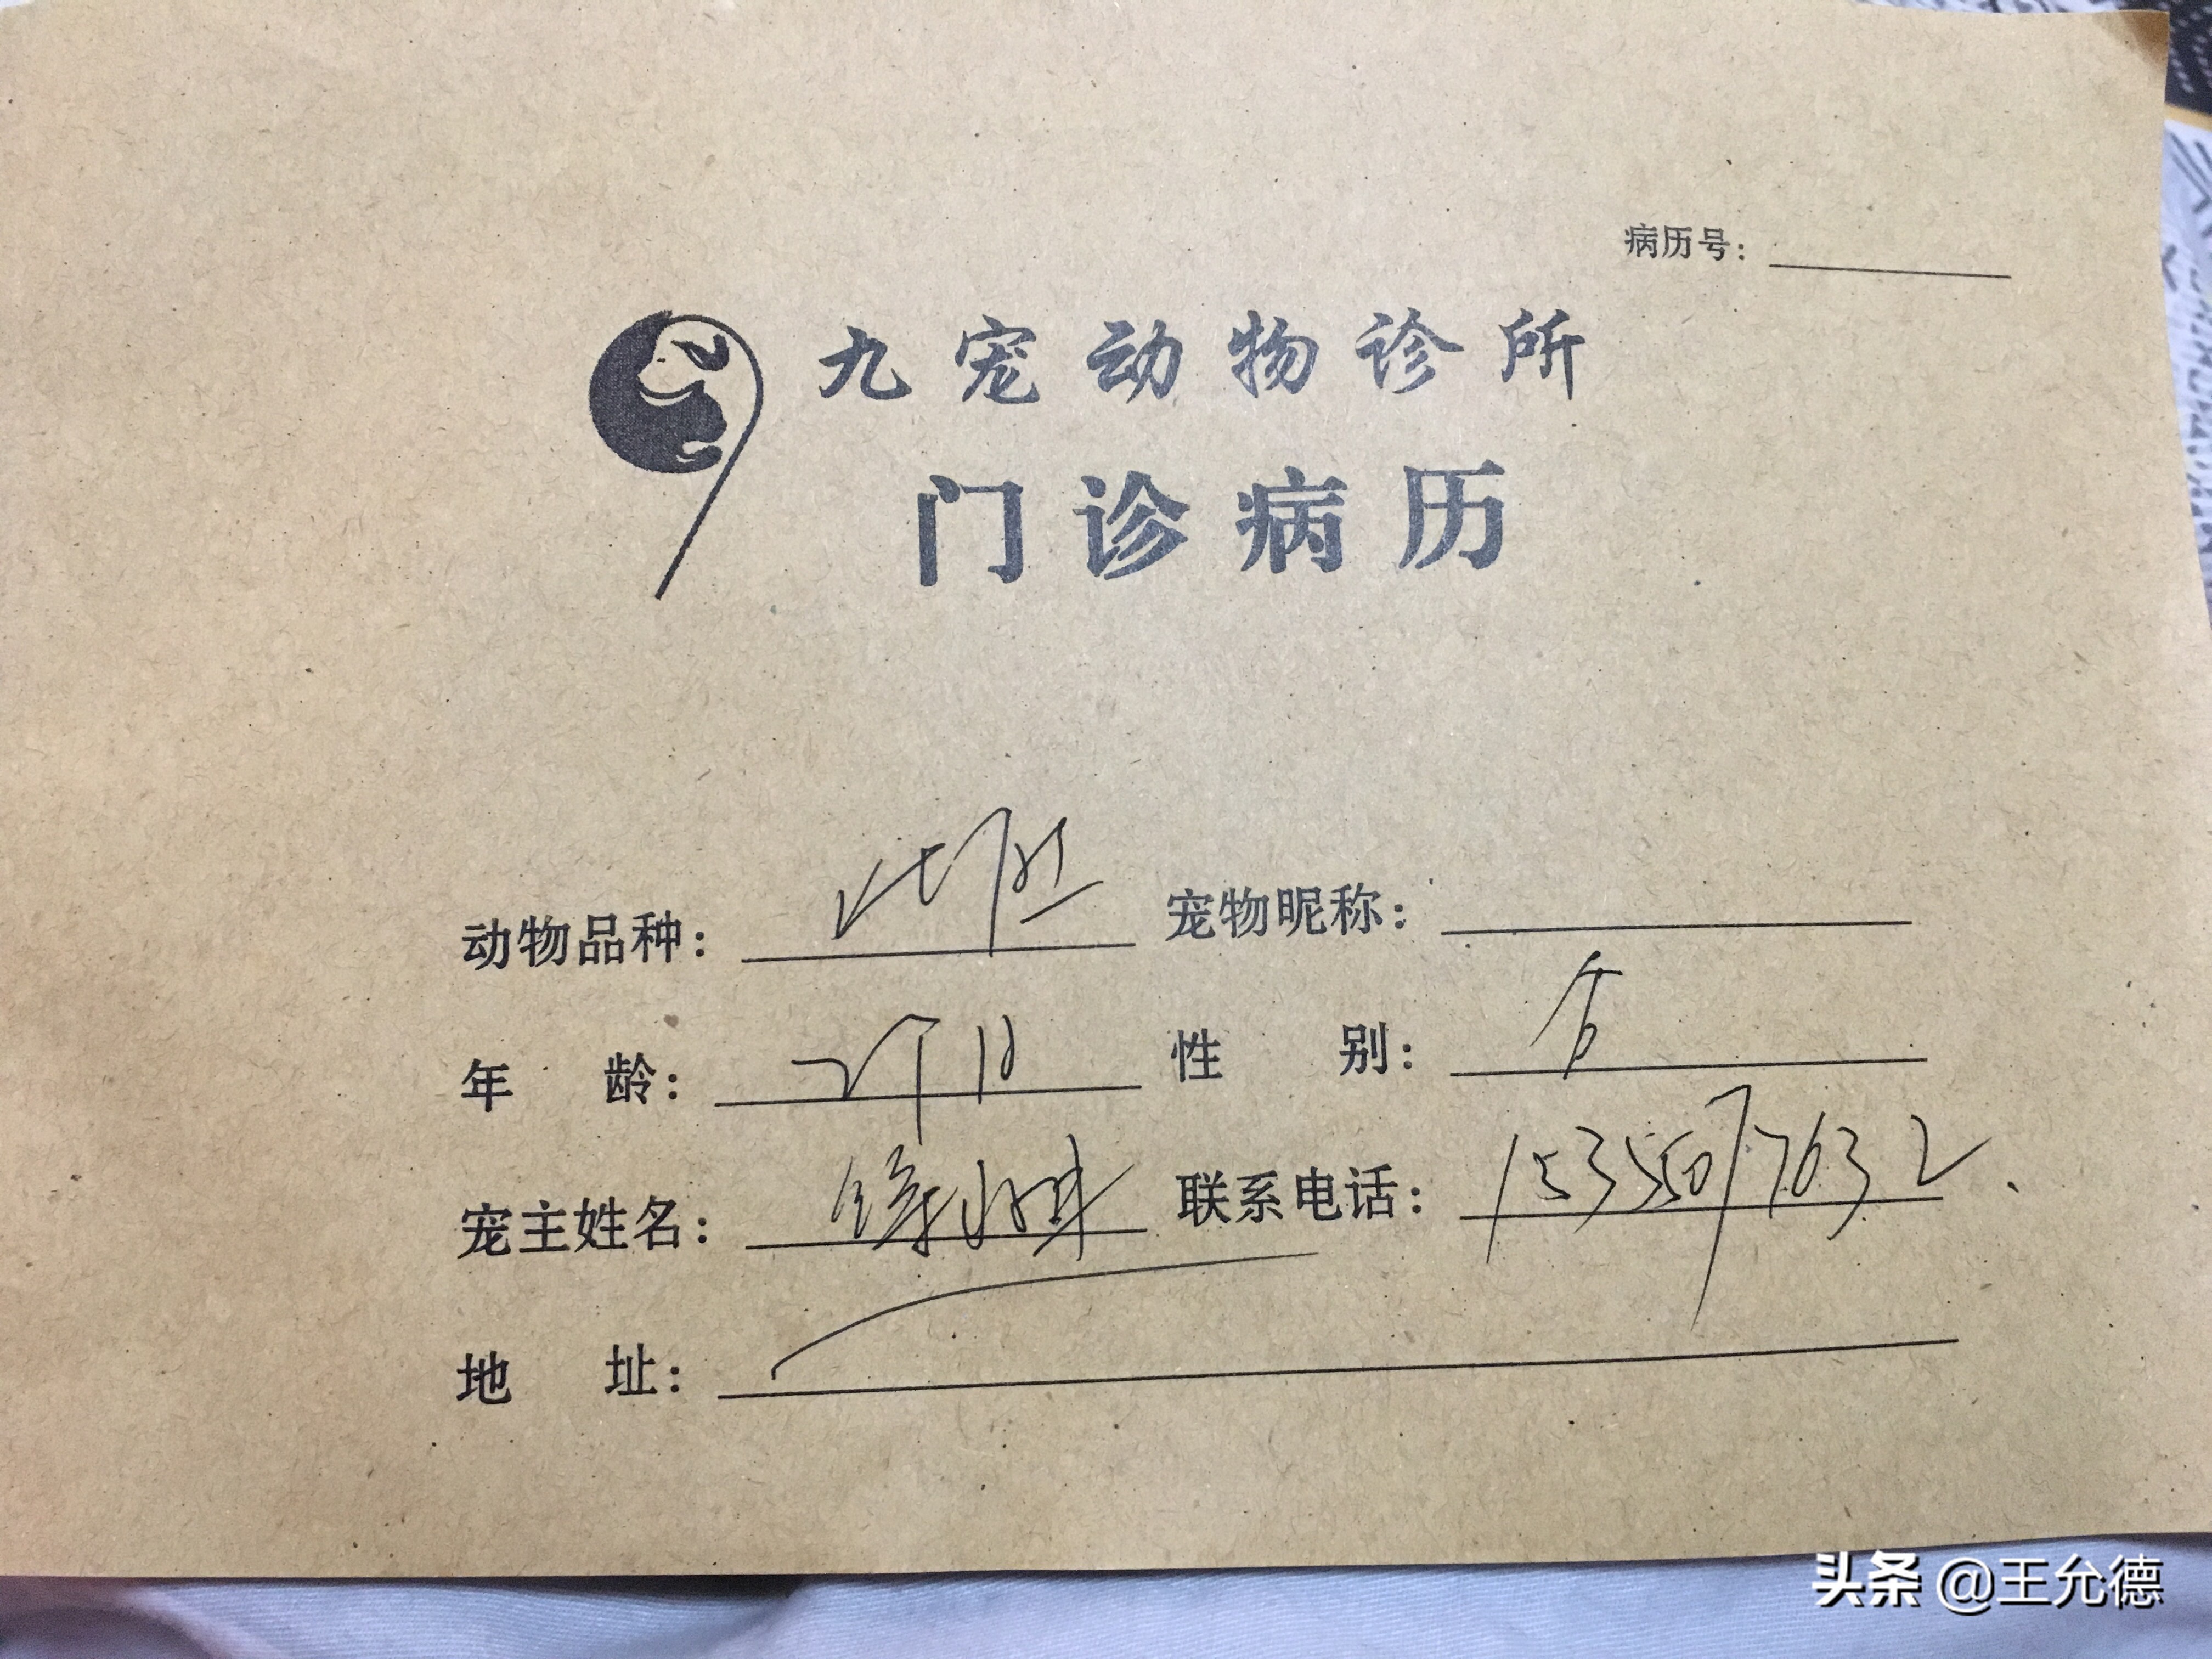 病历号：
九宠动物诊所
门诊病历
动物品种：比熊 宠物昵称：
年龄： 性别：
宠主姓名： 联系电话：15335017632
地址：
头条 @王允德